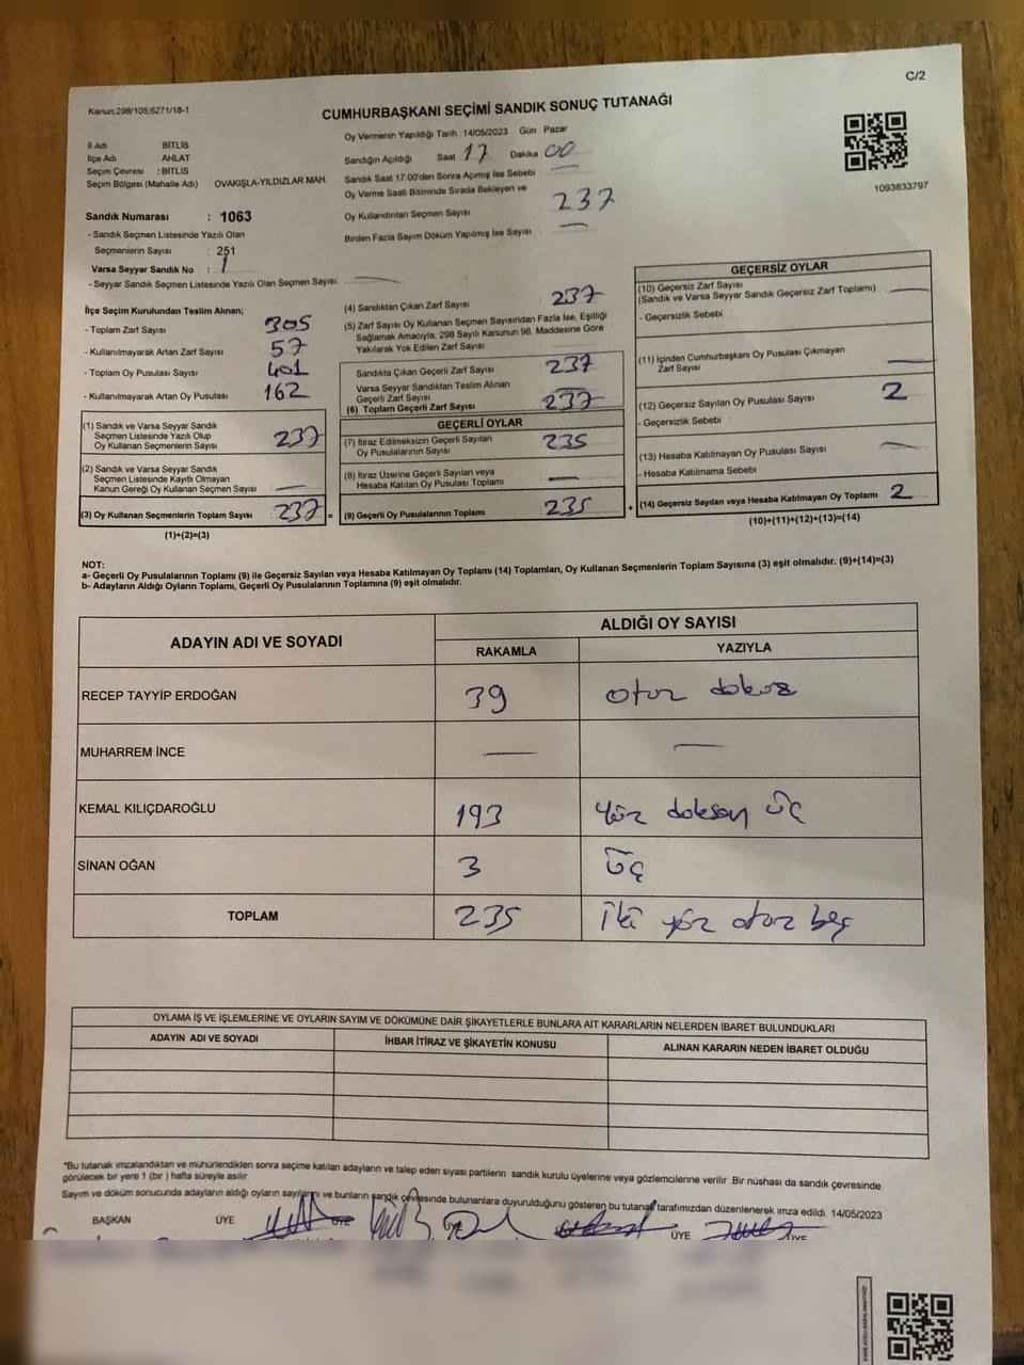 C/2
Kanun:298/105,6271/18-1
CUMHURBAŞKANI SEÇİMİ SANDIK SONUÇ TUTANAĞI
Oy Vermenin Yapıldığı Tarih 14/05/2023 Gün Pazar
İl Adı BİTLİS
İlçe Adı AHLAT
Seçim Çevresi : BİTLİS
Seçim Bölgesi (Mahalle Adı) OVAKIŞLA-YILDIZLAR MAH.
Sandığın Açıldığı Saat 17 Dakika 00
Sandık Saat 17:00'den Sonra Açılmış İse Sebebi
Oy Verme Saati Bitiminde Sırada Bekleyen ve
Oy Kullandırılan Seçmen Sayısı 237
Birden Fazla Sayım Döküm Yapılmış İse Sayısı —
1093833797
Sandık Numarası : 1063
- Sandık Seçmen Listesinde Yazılı Olan
Seçmenlerin Sayısı : 251
Varsa Seyyar Sandık No : 1
- Seyyar Sandık Seçmen Listesinde Yazılı Olan Seçmen Sayısı: —
İlçe Seçim Kurulundan Teslim Alınan;
- Toplam Zarf Sayısı 305
- Kullanılmayarak Artan Zarf Sayısı 57
- Toplam Oy Pusulası Sayısı 401
- Kullanılmayarak Artan Oy Pusulası 162
(1) Sandık ve Varsa Seyyar Sandık
Seçmen Listesinde Yazılı Olup
Oy Kullanan Seçmenlerin Sayısı 237
(2) Sandık ve Varsa Seyyar Sandık
Seçmen Listesinde Kayıtlı Olmayan
Kanun Gereği Oy Kullanan Seçmen Sayısı —
(3) Oy Kullanan Seçmenlerin Toplam Sayısı 237 =
(1)+(2)=(3)
(4) Sandıktan Çıkan Zarf Sayısı 237
(5) Zarf Sayısı Oy Kullanan Seçmen Sayısından Fazla İse, Eşitliği
Sağlamak Amacıyla, 298 Sayılı Kanunun 98. Maddesine Göre
Yakılarak Yok Edilen Zarf Sayısı —
Sandıkta Çıkan Geçerli Zarf Sayısı 237
Varsa Seyyar Sandıktan Teslim Alınan
Geçerli Zarf Sayısı —
(6) Toplam Geçerli Zarf Sayısı 237
GEÇERLİ OYLAR
(7) İtiraz Edilmeksizin Geçerli Sayılan
Oy Pusulalarının Sayısı 235
(8) İtiraz Üzerine Geçerli Sayılan veya
Hesaba Katılan Oy Pusulası Toplamı —
(9) Geçerli Oy Pusulalarının Toplamı 235 +
GEÇERSİZ OYLAR
(10) Geçersiz Zarf Sayısı
(Sandık ve Varsa Seyyar Sandık Geçersiz Zarf Toplamı) —
- Geçersizlik Sebebi
(11) İçinden Cumhurbaşkanı Oy Pusulası Çıkmayan
Zarf Sayısı —
(12) Geçersiz Sayılan Oy Pusulası Sayısı 2
- Geçersizlik Sebebi
(13) Hesaba Katılmayan Oy Pusulası Sayısı —
- Hesaba Katılmama Sebebi
(14) Geçersiz Sayılan veya Hesaba Katılmayan Oy Toplamı 2
(10)+(11)+(12)+(13)=(14)
NOT:
a- Geçerli Oy Pusulalarının Toplamı (9) ile Geçersiz Sayılan veya Hesaba Katılmayan Oy Toplamı (14) Toplamları, Oy Kullanan Seçmenlerin Toplam Sayısına (3) eşit olmalıdır. (9)+(14)=(3)
b- Adayların Aldığı Oyların Toplamı, Geçerli Oy Pusulalarının Toplamına (9) eşit olmalıdır.
ADAYIN ADI VE SOYADI ALDIĞI OY SAYISI
RAKAMLA YAZIYLA
RECEP TAYYİP ERDOĞAN 39 otuz dokuz
MUHARREM İNCE — —
KEMAL KILIÇDAROĞLU 193 yüz doksan üç
SİNAN OĞAN 3 üç
TOPLAM 235 iki yüz otuz beş
OYLAMA İŞ VE İŞLEMLERİNE VE OYLARIN SAYIM VE DÖKÜMÜNE DAİR ŞİKAYETLERLE BUNLARA AİT KARARLARIN NELERDEN İBARET BULUNDUKLARI
ADAYIN ADI VE SOYADI İHBAR İTİRAZ VE ŞİKAYETİN KONUSU ALINAN KARARIN NEDEN İBARET OLDUĞU
*Bu tutanak imzalandıktan ve mühürlendikten sonra seçime katılan adayların ve talep eden siyasi partilerin sandık kurulu üyelerine veya gözlemcilerine verilir. Bir nüshası da sandık çevresinde
görülecek bir yere 1 (bir) hafta süreyle asılır.
Sayım ve döküm sonucunda adayların aldığı oyların sayılarını ve bunların sandık çevresinde bulunanlara duyurulduğunu gösteren bu tutanak tarafımızdan düzenlenerek imza edildi. 14/05/2023
BAŞKAN ÜYE ÜYE ÜYE ÜYE